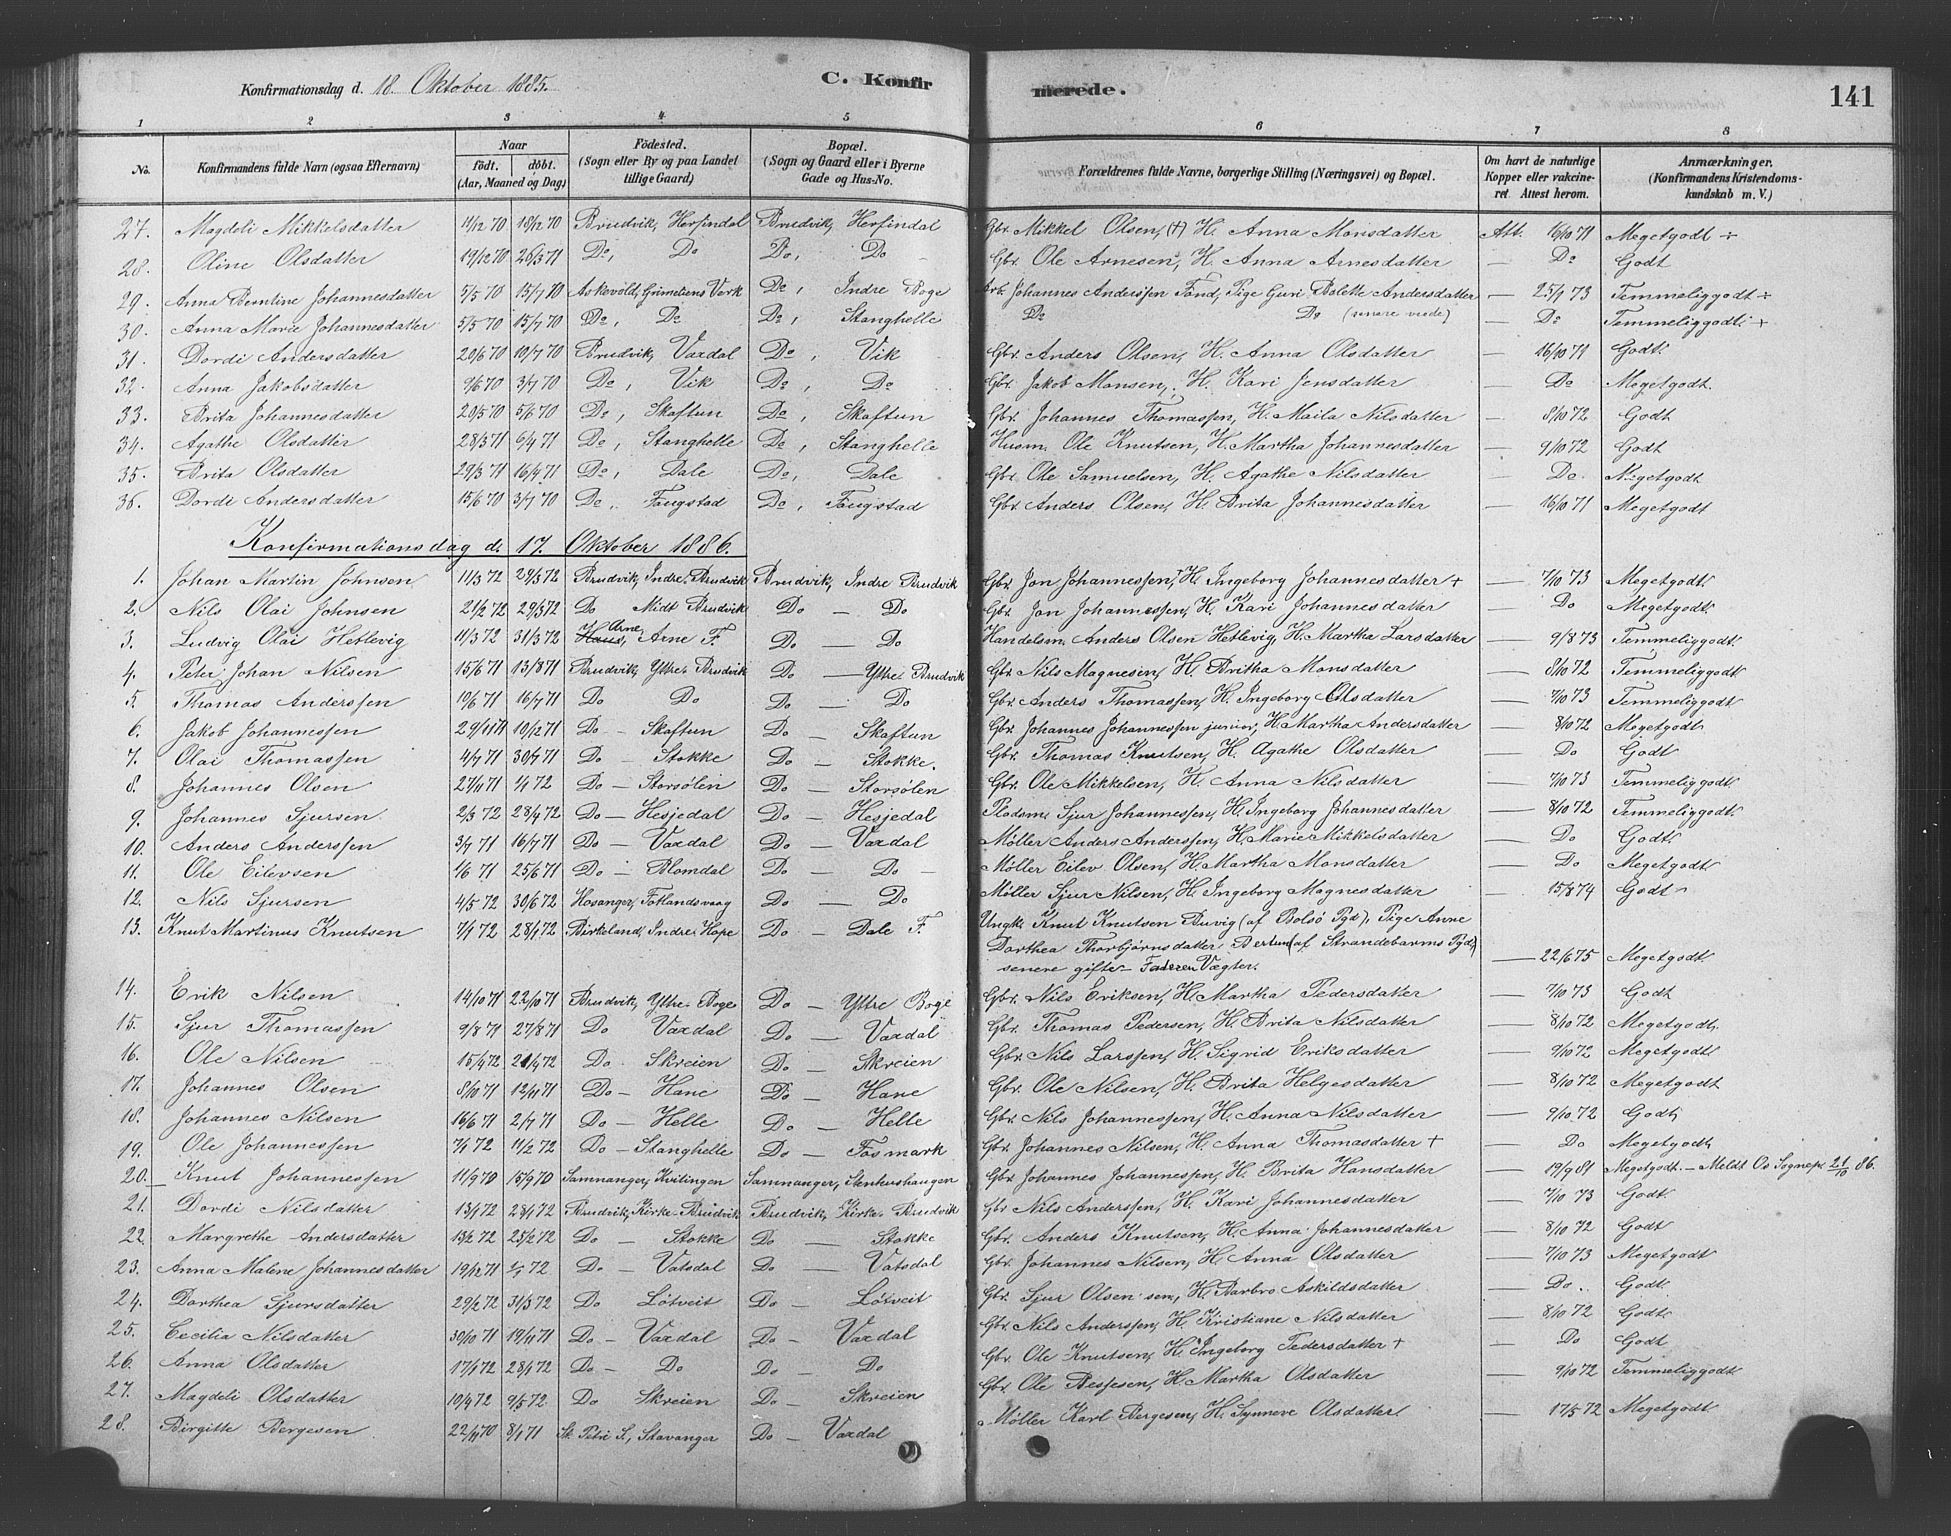 Konfirmationsdag d. 18. Oktober 1885. C. Konfirmerede. 141
1 2 3 4 5 6 7 8
No. Konfirmandens fulde Navn (ogsaa Efternavn) Naar födt. döbt. (Aar, Maaned og Dag) Födested. (Sogn eller By og paa Landet tillige Gaard) Bopæl. (Sogn og Gaard eller i Byerne Gade og Hus-No. Forældrenes fulde Navne, borgerlige Stilling (Næringsvei) og Bopæl. Om havt de naturlige Kopper eller vakcineret Attest herom. Anmærkninger. (Konfirmandens Kristendomskundskab m. V.)
27. Magdeli Mikkelsdatter 11/12 70 18/12 70 Brudvik, Herfindal Brudvik, Herfindal Gbr. Mikkel Olsen, (†) H. Anna Monsdatter Att. 16/10 71 Megetgodt ÷
28. Oline Olsdatter 19/12 70 26/3 71 Do, Do Do, Do Gbr. Ole Arnesen, H. Anna Arnesdatter — Do Godt
29. Anna Berntine Johannesdatter 5/5 70 15/7 70 Askevold, Grimeliens Verk Do, Indre Boge Arb. Johannes Anderssen Fond, Pige Guri Bolette Andersdatter — 25/7 73 Temmeliggodt ÷
30. Anna Marie Johannesdatter 5/5 70 15/7 70 Do, Do Do, Stanghelle Do Do (senere viede) — Do Temmeliggodt +
31. Dordi Andersdatter 20/6 70 10/7 70 Brudvik, Vaxdal Do, Vik Gbr. Anders Olsen, H. Anna Olsdatter — 16/10 71 Godt.
32. Anna Jakobsdatter 9/6 70 3/7 70 Do, Vik Do, Do Gbr. Jakob Monsen, H. Kari Jensdatter — Do Megetgodt.
33. Brita Johannesdatter 20/5 70 5/6 70 Do, Skaftun Do, Skaftun Gbr. Johannes Thomassen, H. Maila Nilsdatter — 8/10 72 Godt
34. Agathe Olsdatter 28/3 71 6/4 71 Do, Stanghelle Do, Stanghelle Husm. Ole Knutsen, H. Martha Johannesdatter — 9/10 72 Godt
35. Brita Olsdatter 29/3 71 16/4 71 Do, Dale Do, Dale Gbr. Ole Samuelsen, H. Agathe Nilsdatter — Do. Megetgodt
36. Dordi Andersdatter 15/6 70 3/7 70 Do, Faugstad Do, Faugstad Gbr. Anders Olsen, H. Brita Johannesdatter — 16/10 71 Megetgodt
Konfirmationsdag d. 17. Oktober 1886.
1. Johan Martin Johnsen 11/3 72 29/3 72 Brudvik, Indre-Brudvik Brudvik, Indre Brudvik Gbr. Jon Johannessen, H. Ingeborg Johannesdatter + — 7/10 73 Megetgodt.
2. Nils Olai Johnsen 21/2 72 29/3 72 Do Midt Brudvik Do — Do Gbr. Jon Johannessen, H. Kari Johannesdatter — Do Megetgodt.
3. Ludvig Olai Hetlevig 11/3 72 31/3 72 Haus, Arne F. Do — Do Handelsm. Anders Olsen Hetlevig, H. Martha Larsdatter — 9/8 73 Temmeliggodt.
4. Peter Johan Nilsen 15/6 71 13/8 71 Brudvik, Yttre-Brudvik Do — Yttre Brudvik Gbr. Nils Magnesen, H. Britha Monsdatter — 8/10 72 Temmeliggodt
5. Thomas Anderssen 19/6 71 16/7 71 Do Do Do — Do Gbr. Anders Thomassen, H. Ingeborg Olsdatter — 7/10 73 Temmeliggodt
6. Jakob Johannessen 29/11 71 10/12 71 Do — Skaftun Do — Skaftun Gbr. Johannes Johannessen junior, H. Martha Andersdatter — 8/10 72 Megetgodt
7. Olai Thomassen 4/7 71 30/7 71 Do — Stokke Do — Stokke. Gbr. Thomas Knutsen, H. Agathe Olsdatter — Do Godt
8. Johannes Olsen 27/11 71 1/1 72 Do — Storsølen Do — Storsølen Gbr. Ole Mikkelsen, H. Anna Nilsdatter — 7/10 73 Temmeliggodt.
9. Johannes Sjursen 2/3 72 28/4 72 Do — Hesjedal Do — Hesjedal Pladsm. Sjur Johannessen, H. Ingeborg Johannesdatter — 8/10 72 Temmeliggodt.
10. Anders Anderssen 3/7 71 16/7 71 Do — Vaxdal Do — Vaxdal Møller Anders Anderssen, H. Marie Mikkelsdatter — Do Godt.
11. Ole Eilevsen 1/6 71 25/6 71 Do — Blomdal Do — Do — Møller Eilev Olsen, H. Martha Monsdatter — Do Megetgodt
12. Nils Sjursen 4/5 72 30/6 72 Hosanger, Fotlandsvaag Do — Do Møller Sjur Nilsen, H. Ingeborg Magnesdatter — 15/8 74 Godt
13. Knut Martinus Knutsen 7/1 72 28/1 72 Birkeland, Indre-Hope Do — Dale F. Ungk. Knut Knutsen Buvig (af Bolsø Pgd), Pige Anne
Dorthea Thorbjørnsdatter (af Strandebarms Pgd) — 22/6 75 Megetgodt
senere gifte — Faderen Vægter.
14. Erik Nilsen 14/10 71 22/10 71 Brudvik, Yttre-Boge Do — Yttre Boge Gbr. Nils Eriksen, H. Martha Pedersdatter — 7/10 73 Godt
15. Sjur Thomassen 9/8 71 27/8 71 Do Vaxdal Do — Vaxdal Gbr. Thomas Pedersen, H. Brita Nilsdatter — 8/10 72 Megetgodt,
16. Ole Nilsen 15/4 72 21/4 72 Do. Skreien Do — Skreien Gbr. Nils Larssen, H. Sigrid Eriksdatter — 9/10 72 Megetgodt.
17. Johannes Olsen 8/10 71 12/11 71 Do — Hane Do — Hane Gbr. Ole Nilsen, H. Brita Helgesdatter — 8/10 72 Megetgodt
18. Johannes Nilsen 16/6 71 2/7 71 Do — Helle Do — Helle Gbr. Nils Johannessen, H. Anna Nilsdatter — 9/10 72 Godt
19. Ole Johannessen 7/1 72 11/2 72 Do — Stanghelle Do — Fosmark Gbr. Johannes Nilsen, H. Anna Thomasdatter + — Do Megetgodt,
20. Knut Johannessen 11/9 70 15/9 70 Samnanger, Kvitingen Samnanger, Gbr. Johannes Johannessen, H. Brita Hansdatter — 19/9 81 Megetgodt. — Meldt Os Sognepr. 21/10 86.
21. Dordi Nilsdatter 13/1 72 28/1 72 Brudvik, Kirke-Brudvik Brudvik, Kirke-Brudvik Gbr. Nils Anderssen, H. Kari Johannesdatter — 7/10 73 Godt.
22. Margrethe Andersdatter 13/2 72 25/2 72 Do — Stokke Do — Stokke Gbr. Anders Knutsen, H. Anna Johannesdatter — 8/10 72 Godt
23. Anna Malene Johannesdatter 19/12 71 1/1 72 Do — Vatsdal Do — Vatsdal Gbr. Johannes Nilsen, H. Anna Olsdatter — 7/10 73 Megetgodt
24. Dorthea Sjursdatter 29/2 72 31/3 72 Do Lötveit Do — Lötveit Gbr. Sjur Olsen sen, H. Barbro Askildsdatter — Do. Godt.
25. Cecilia Nilsdatter 30/10 71 19/11 71 Do — Vaxdal Do — Vaxdal Gbr. Nils Anderssen, H. Kristiane Nilsdatter — 8/10 72 Godt
26. Anna Olsdatter 17/1 72 28/1 72 Do — Do Do — Do Gbr. Ole Knutsen, H. Ingeborg Pedersdatter + — Do Godt
27. Magdeli Olsdatter 10/4 72 9/5 72 Do Skreien Do — Skreien Gbr. Ole H. Martha Olsdatter — 9/10 72 Temmeliggodt
28. Birgitte Bergesen 22/11 70 8/1 71 St. Petri S., Stavanger Do — Vaxdal Møller Karl Bergesen, H. Synneve Olsdatter — 17/5 72 Megetgodt